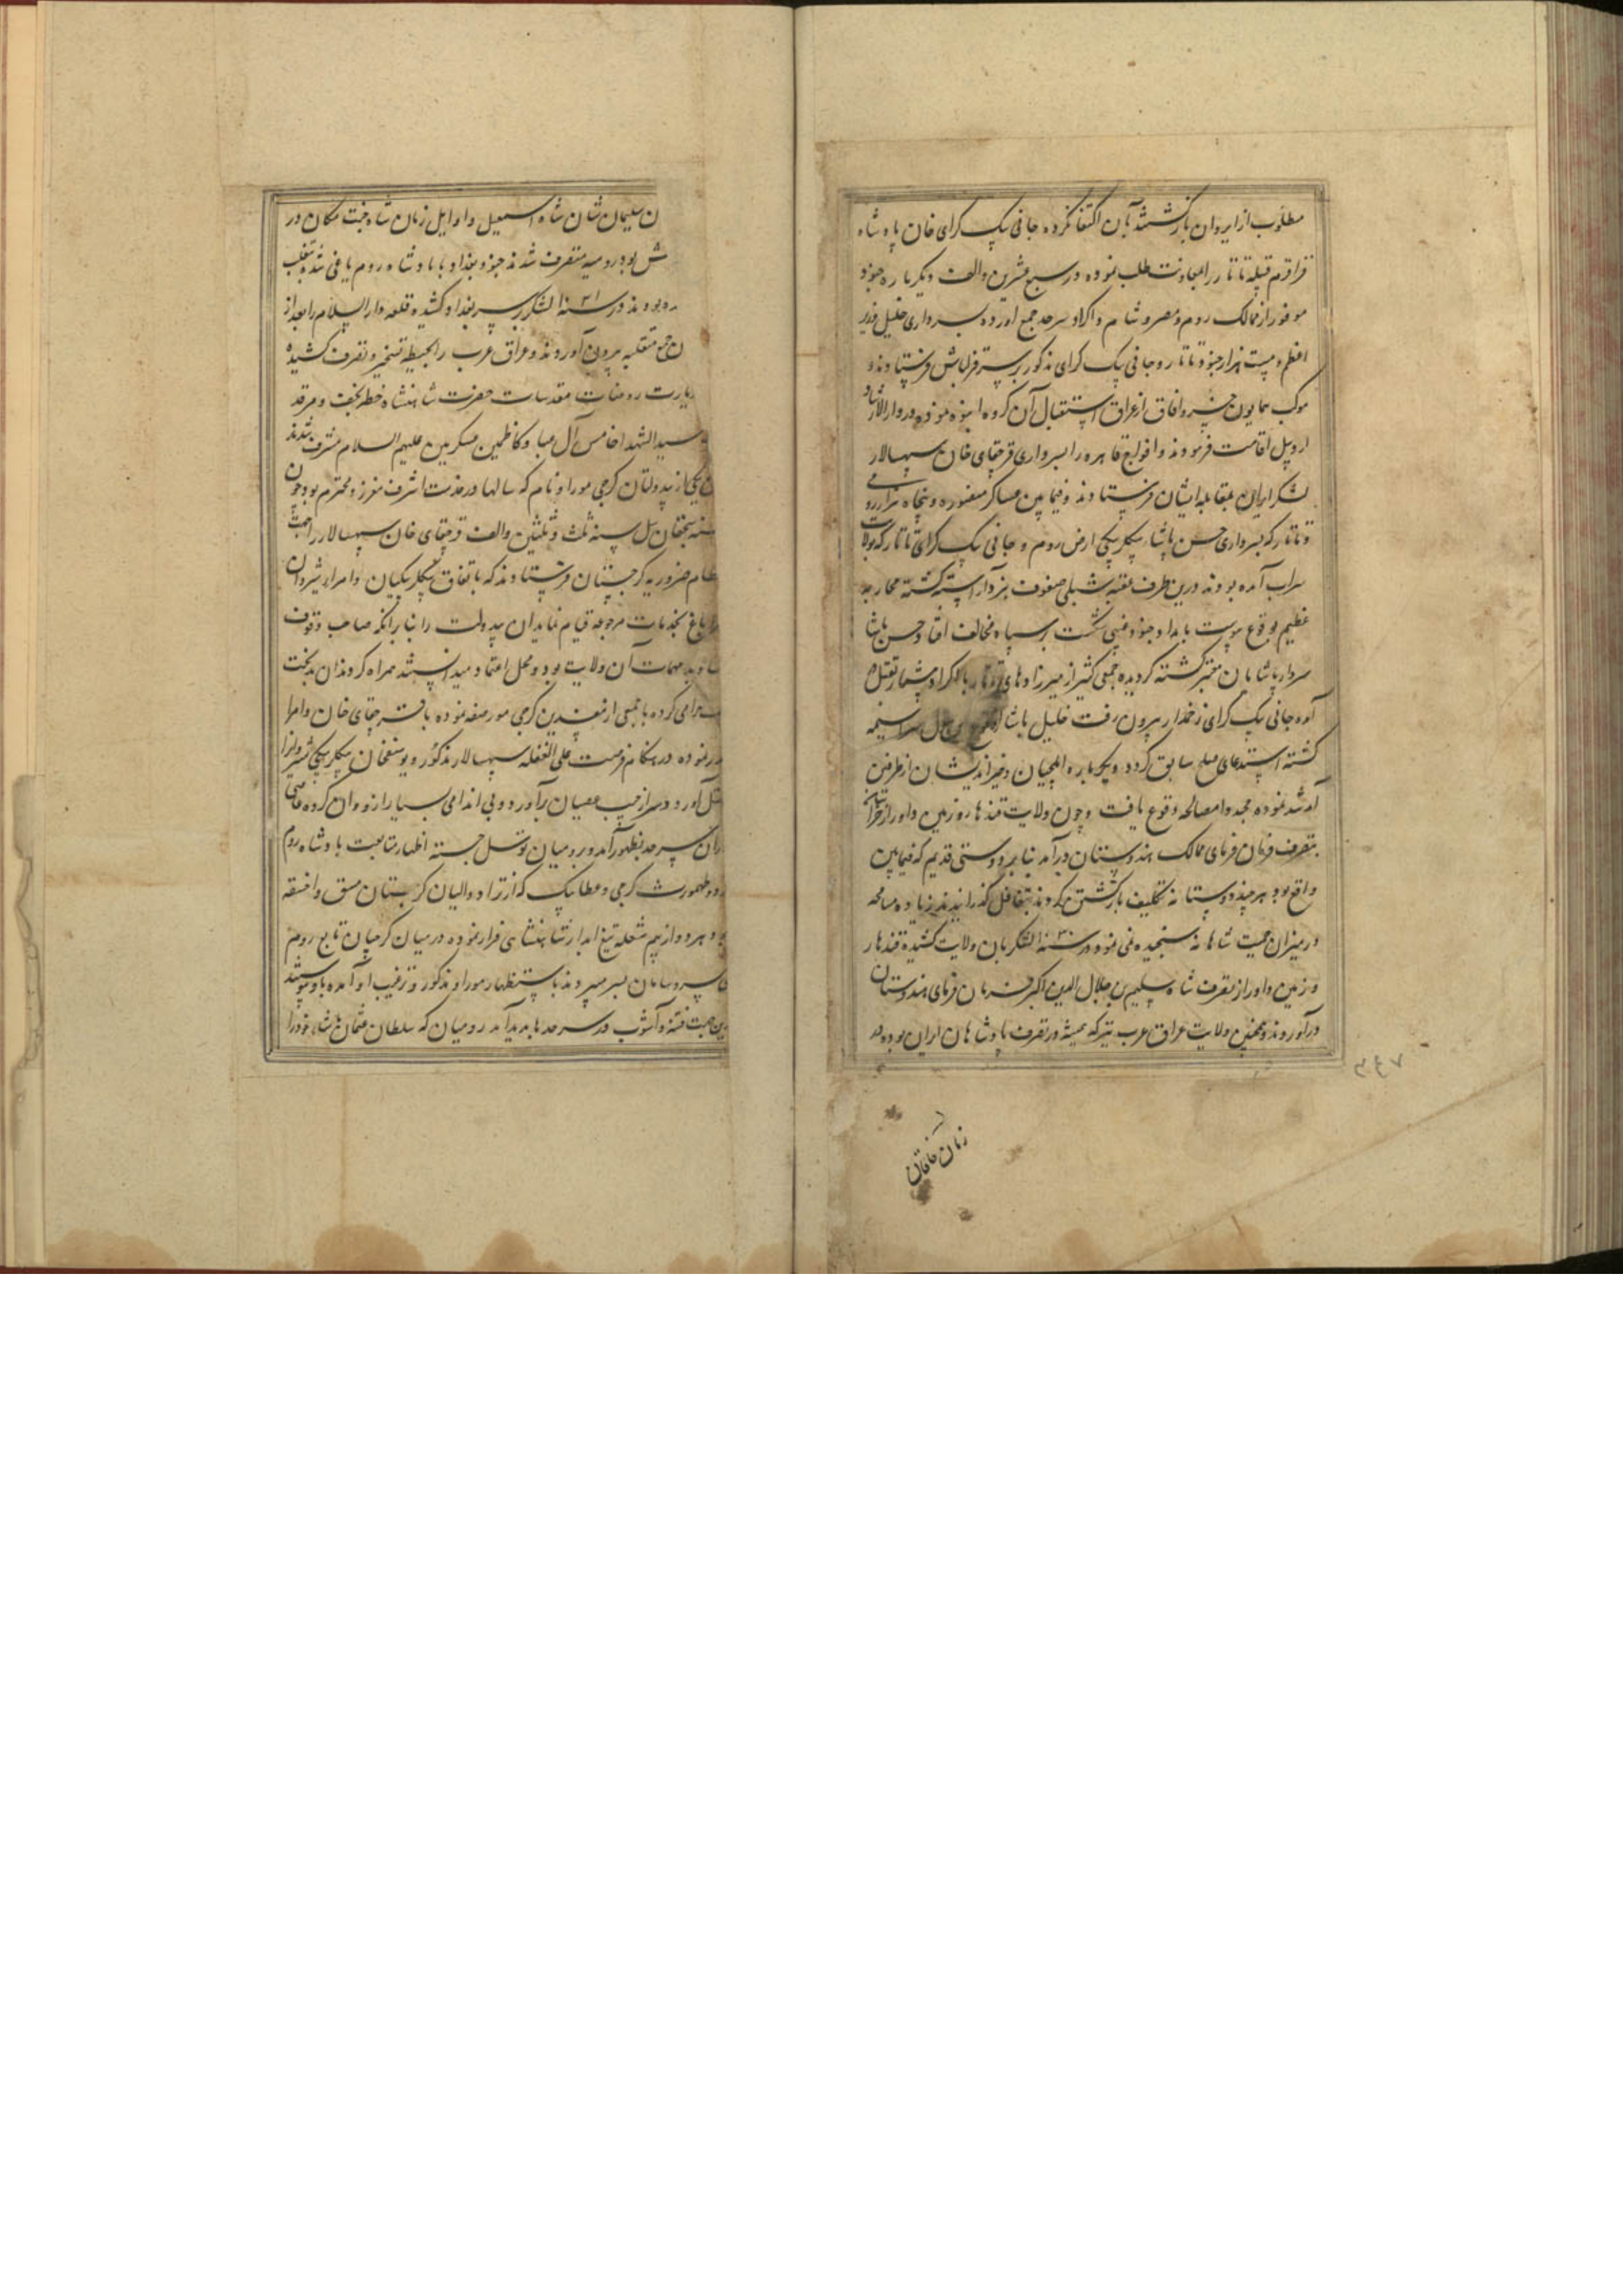 مطلوب از ایروان بازگشتند بآن اکتفا نکرده جانی بیک کرای خان پادشاه
قراقرم قبیله تاتار را بمعاونت طلب نموده در سبع عشرین والف دیگر باره جنود
موفور از ممالک روم و مصر و شام و اکراد سرحد جمع آورده بسرداری خلیل وزیر
اعظم و بیست هزار جنود تاتار و جانی بیک کرای مذکور بر سر قزلباش فرستادند و
موکب همایون خسرو آفاق از عراق استقبال آن گروه انبوه نموده در دارالارشاد
اردبیل اقامت فرمودند و افواج قاهره را بسرداری قرچقای خان سپهسالار
لشکر ایران بمقابله ایشان فرستادند و فیمابین عساکر منصوره و پنجاه هزار رومی
و تاتار که بسرداری حسن پاشاء بیکلربیکی ارض روم و جانی بیک کرای تاتار که بولایت
سراب آمده بودند درین طرف عقبه شبلی صفوف نبرد آراسته گشته محاربه
عظیم بوقوع پیوست بامداد جنود غیبی شکست بر سپاه مخالف افتاد و حسن پاشا
سردار با پاشایان معتبر کشته گردیده جمعی کثیر از میرزادهای تاتار با اکراد بیشمار بقتل
آمده جانی بیک کرای زخمدار بیرون رفت خلیل پاشا سراسیمه
گشته استدعای صلح سابق کرد و دیگر باره ایلچیان و خیراندیشان از طرفین
آمد شد نموده مجددا مصالحه وقوع یافت و چون ولایت قندهار و زمین داور از خراسان
بتصرف فرمان فرمای ممالک هندوستان درآمد بنا بر دوستی قدیم که فیمابین
واقع بود هر چند دوستانه تکلیف بازگشتن کردند بتغافل گذرانیدند زیاده مسامحه
در میزان حمیت شاهانه سنجیده نمی نمود در سنه ۱۰۳۱ لشکر بان ولایت کشیده قندهار
و زمین داور از تصرف شاه سلیم بن جلال الدین اکبر فرمان فرمای هندوستان
درآوردند و همچنین ولایت عراق عرب نیز که همیشه در تصرف پادشاهان ایران بوده در
زمان خاقان
ن سلیمان شان شاه اسمعیل و اوایل زمان شاه جنت مکان در
ش بود رومیه متصرف شدند جنود بغداد با پادشاه روم یاغی شده متغلب
ده بودند در سنه ۱۰۳۱ لشکر بر سر بغداد کشیده قلعه دارالسلام را بعد از
متغلبه بیرون آوردند و عراق عرب را بحیطه تسخیر و تصرف کشیده
زیارت روضات مقدسات حضرت شاهنشاه خطه نجف و مرقد
سید الشهدا خامس آل عبا و کاظمین عسکریین علیهم السلام مشرف شدند
یکی از بیدولتان کرجی موراو نام که سالها در خدمت اشرف معزز و محترم بود چون
سیچقان ئیل سنه ثلث و ثلثین والف قرچقای خان سپهسالار را جهت
ظام ضروریه گرجستان فرستادند که باتفاق بیکلربیکیان و امراء شیروان
باغ بخدمات مرجوعه قیام نمایند آن بیدولت را بنا برانکه صاحب وقوف
مهمات آن ولایت بود و محل اعتماد میدانستند همراه کردند آن بدبخت
حرامی کرده با جمعی از مفسدین کرجی مواضعه نموده با قرچقای خان و امرا
نموده در هنگام فرصت علی الغفله سپهسالار مذکور و یوسفخان بیکلربیکی شیروانرا
بقتل آورد و سر از جیب عصیان برآورد و بی اندامی بسیار ازو و آن گروه عاصی
ران سرحد بظهور آمد و رومیان توسل جسته اظهار متابعت پادشاه روم
و طهمورث کرجی و عطابیک که از نژاد والیان گرجستان مسق و اخسقه
و هر دو از بیم شعله تیغ آبدار شاهنشاهی فرار نموده در میان کرجیان تابع روم
سر و سامان بسر میبردند باستظهار موراو مذکور و ترغیب او آمده باو پیوستند
ین جهت فتنه و آشوب در سرحدها پدید آمد رومیان که سلطان عثمان پادشاه خود را